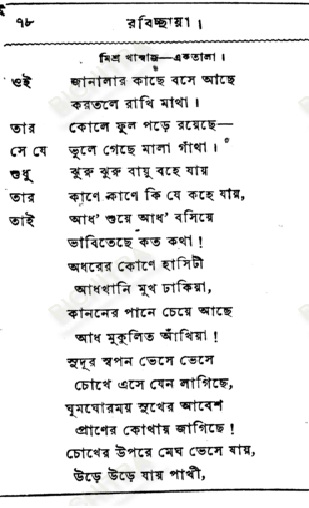 ৭৮ রবিচ্ছায়া।
মিশ্র খাম্বাজ—একতালা।
ওই জানালার কাছে বসে আছে
করতলে রাখি মাথা।
তার কোলে ফুল পড়ে রয়েছে—
সে যে ভুলে গেছে মালা গাঁথা।
শুধু ঝুরু ঝুরু বায়ু বহে যায়
তার কাণে কাণে কি যে কহে যায়,
তাই আধ’ শুয়ে আধ’ বসিয়ে
ভাবিতেছে কত কথা!
অধরের কোণে হাসিটী
আধখানি মুখ ঢাকিয়া,
কাননের পানে চেয়ে আছে
আধ মুকুলিত আঁখিয়া!
সুদূর স্বপন ভেসে ভেসে
চোখে এসে যেন লাগিছে,
ঘুমঘোরময় সুখের আবেশ
প্রাণের কোথায় জাগিছে!
চোখের উপরে মেঘ ভেসে যায়,
উড়ে উড়ে যায় পাখী,